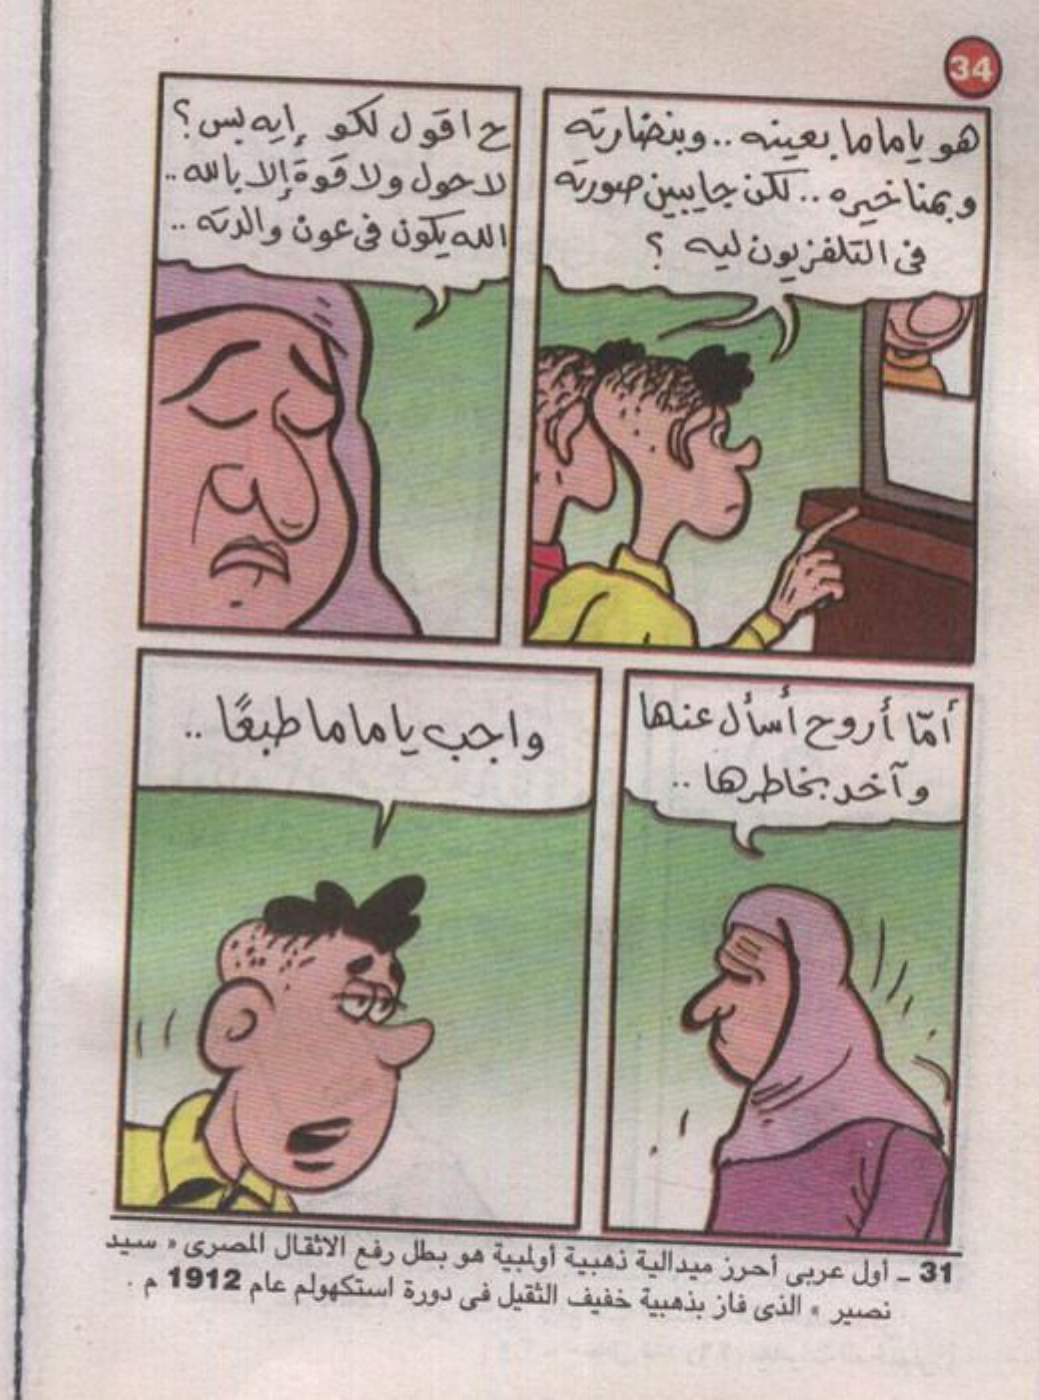 34
هو ياماما بعينه .. وبنضارته
وبمناخيره .. لكن جايبين صورته
فى التلفزيون ليه ؟
ح اقول لكو إيه بس ؟
لا حول ولا قوة إلا بالله ..
الله يكون فى عون والدته ..
أمّا أروح أسأل عنها
وآخد بخاطرها ..
واجب ياماما طبعًا ..
31 ـ أول عربى أحرز ميدالية ذهبية أولمبية هو بطل رفع الاثقال المصرى « سيد
نصير » الذى فاز بذهبية خفيف الثقيل فى دورة استكهولم عام 1912 م .